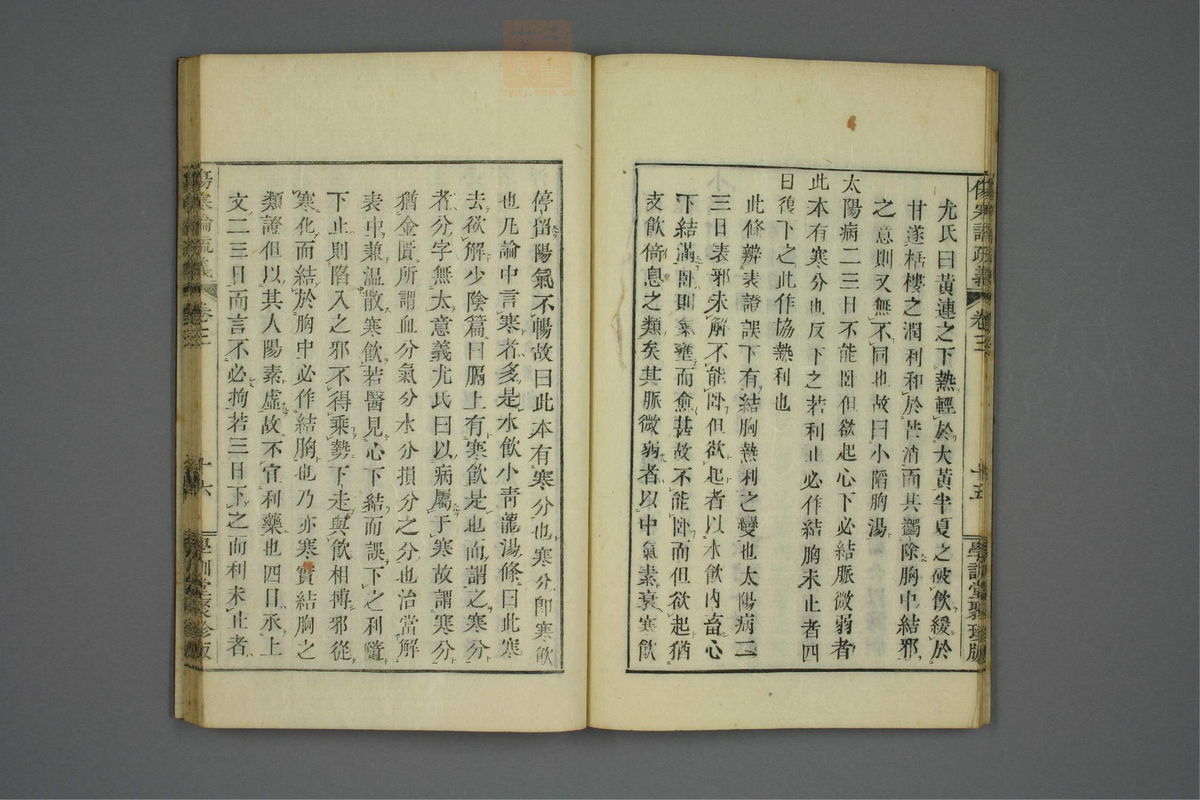 尤氏曰黃連之下熱輕於大黃半夏之破飲緩於
甘遂栝樓之潤利和於芒消而其蠲除胸中結邪
之意則又無不同也故曰小陷胸湯
太陽病二三日不能臥但欲起心下必結脈微弱者
此本有寒分也反下之若利止必作結胸未止者四
日復下之此作協熱利也
此條辨表證誤下有結胸熱利之變也太陽病二
三日表邪未解不能臥但欲起者以水飲內畜心
下結滿臥則氣壅而愈甚故不能臥而但欲起猶
支飲倚息之類矣其脈微弱者以中氣素衰寒飲
停留陽氣不暢故曰此本有寒分也寒分卽寒飲
也凡論中言寒者多是水飲小青龍湯條曰此寒
去欲解少陰篇曰膈上有寒飲是也而謂之寒分
者分字無太意義尤氏曰以病屬于寒故謂寒分
猶金匱所謂血分氣分水分損分之分也治當解
表中兼溫散寒飲若醫見心下結而誤下之利隨
下止則陷入之邪不得乘勢下走與飲相搏邪從
寒化而結於胸中必作結胸也乃亦寒實結胸之
類證但以其人陽素虛故不宜利藥也四日承上
文二三日而言不必拘若三日下之而利未止者
傷寒論疏義 卷三 十五 學訓堂聚珍版
傷寒論疏義 卷三 十六 學訓堂聚珍版